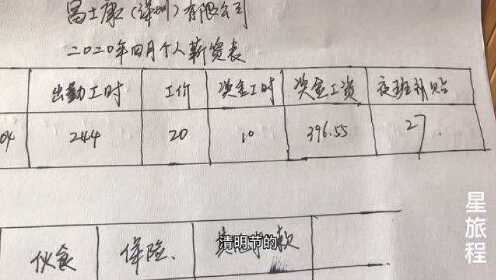 富士康（深圳）有限公司
2020年四月个人薪资表
出勤工时 工价 奖金工时 奖金工资 夜班补贴
04 244 20 10 396.55 27.
伙食 保险. 款
清明节的
星旅程